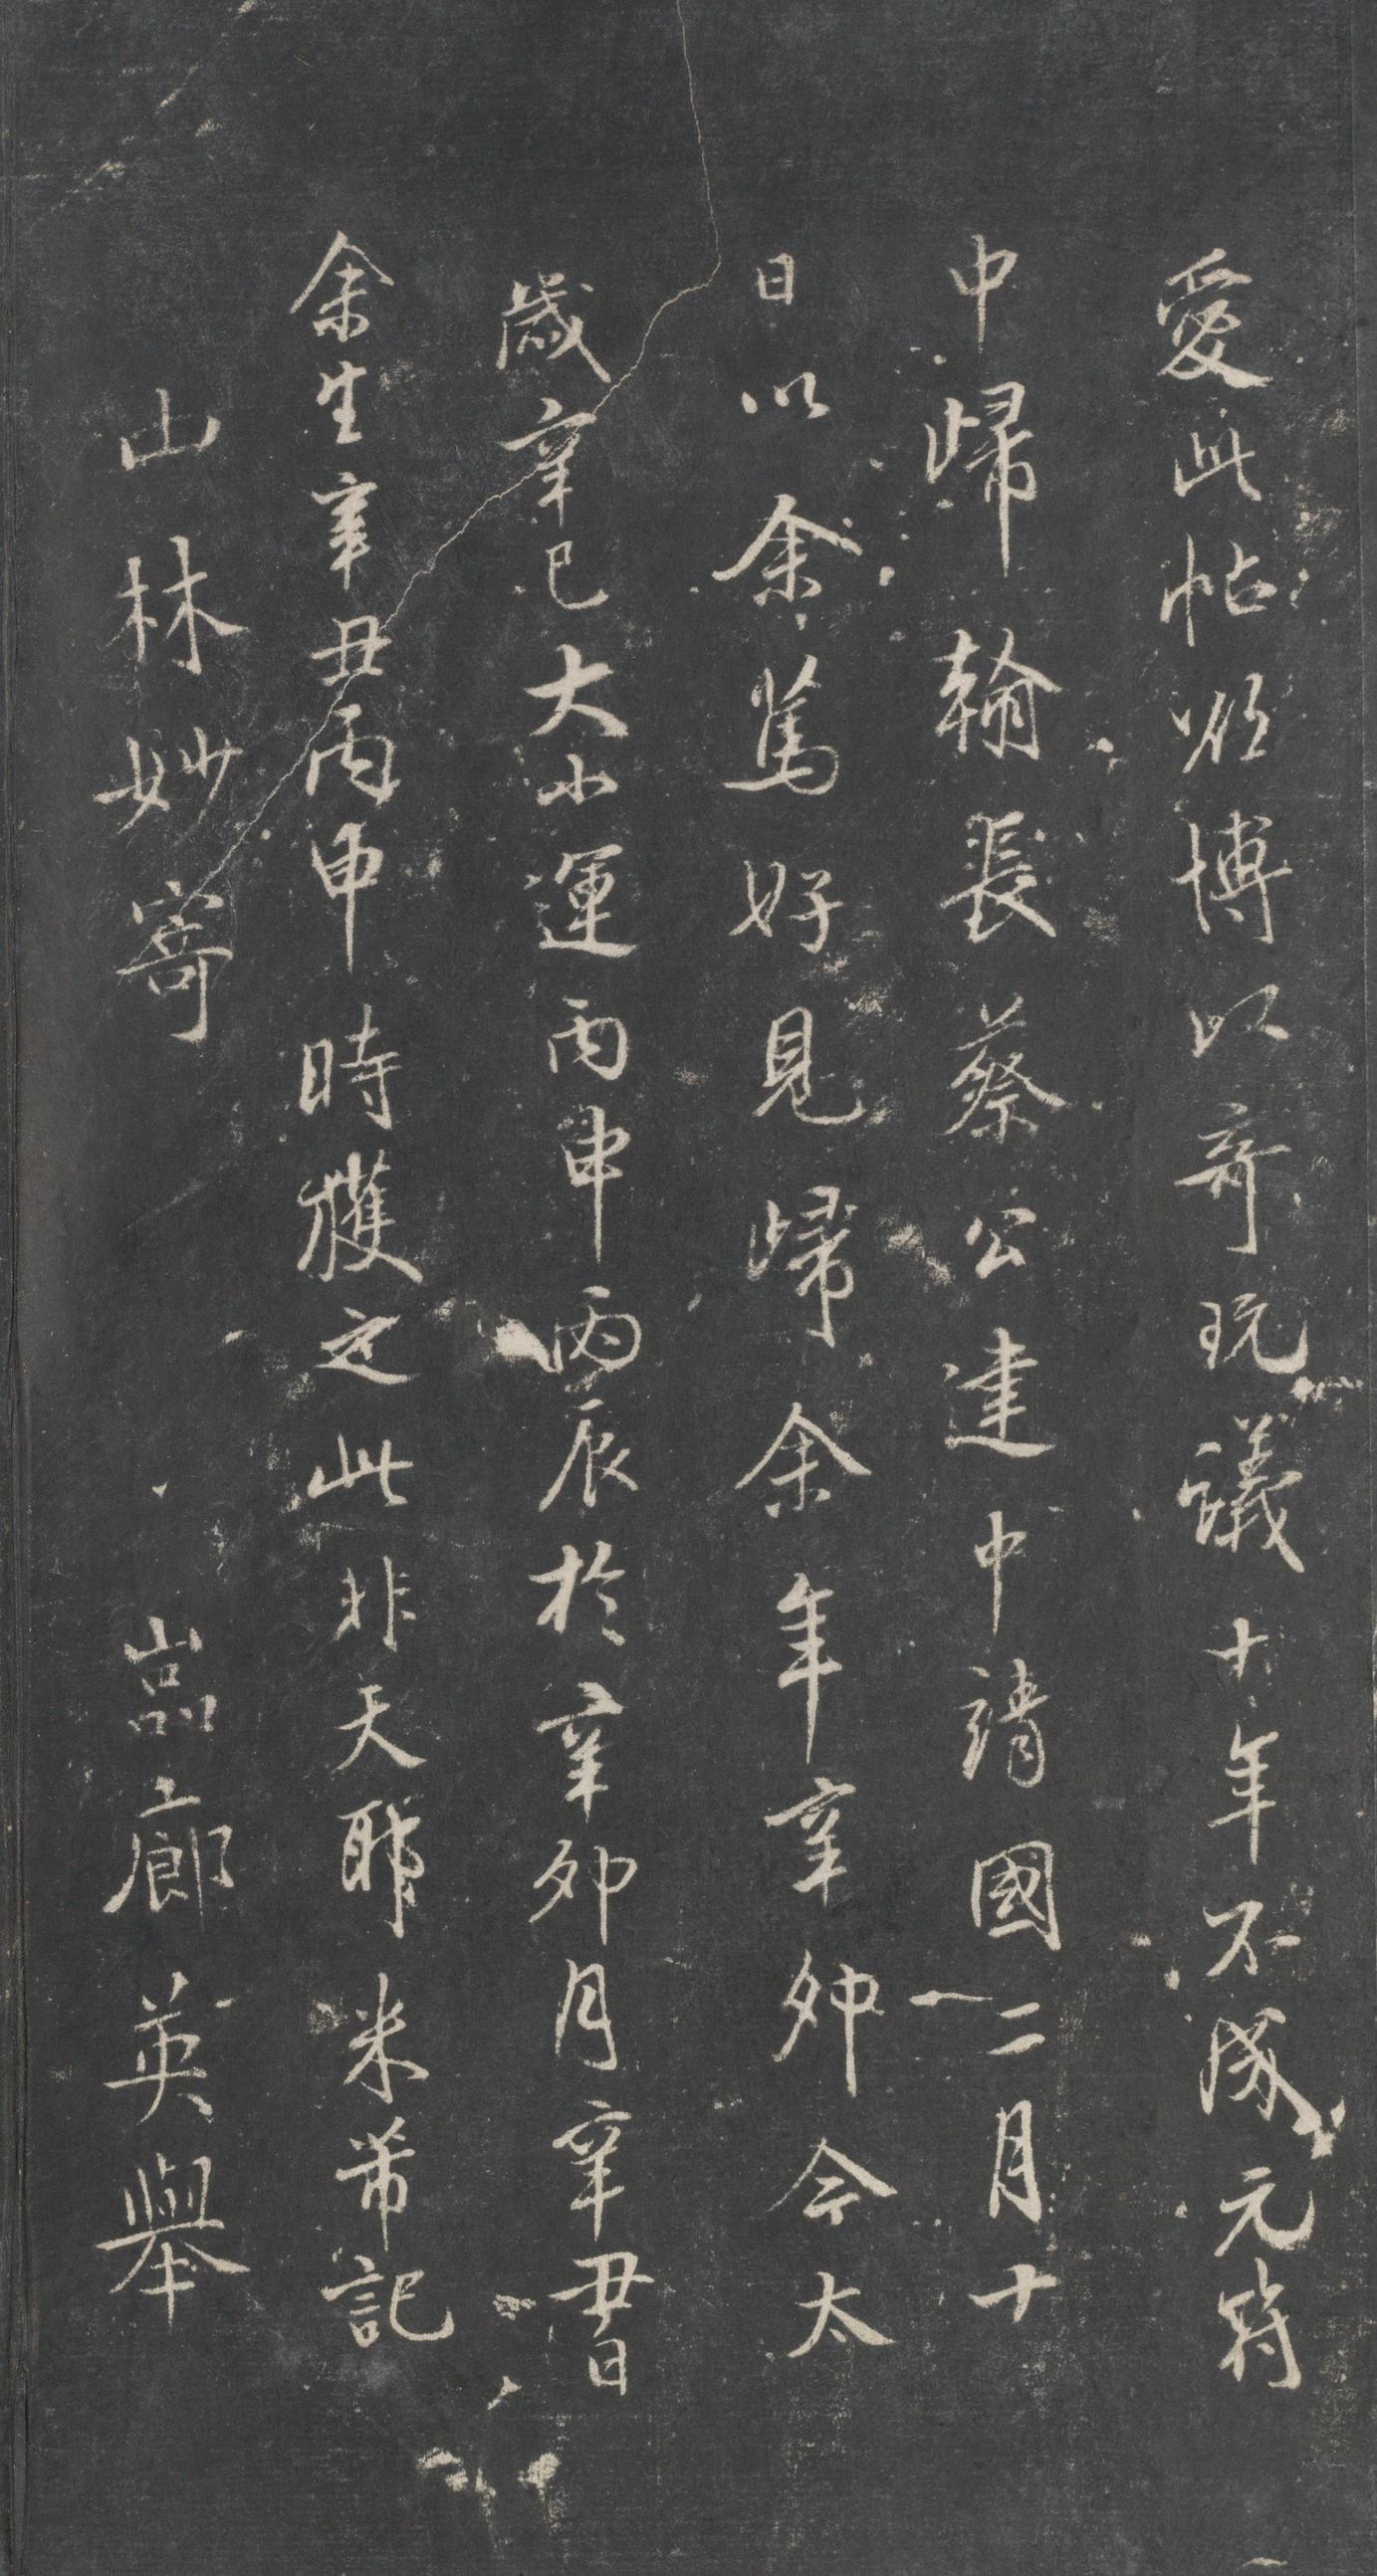 愛此帖欲博以奇玩議十年不成元符
中歸翰長蔡公建中靖國二月十
日以余篤好見歸余年辛卯今太
歲辛巳大小運丙申丙辰於辛卯月辛丑日
余生辛丑丙申時獲之此非天耶米芾記
山林妙寄
嵓廊英舉